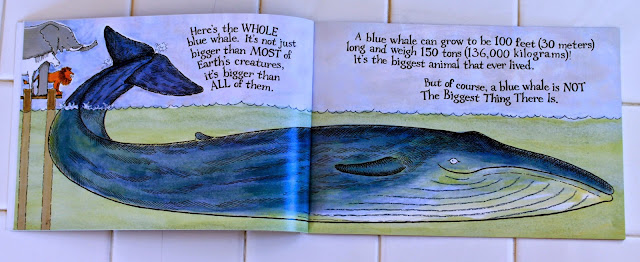 Here's the WHOLE
blue whale. It's not just
bigger than MOST of
Earth's creatures,
it's bigger than
ALL of them.
A blue whale can grow to be 100 feet (30 meters)
long and weigh 150 tons (136,000 kilograms)!
It's the biggest animal that ever lived.
But of course, a blue whale is NOT
The Biggest Thing There Is.